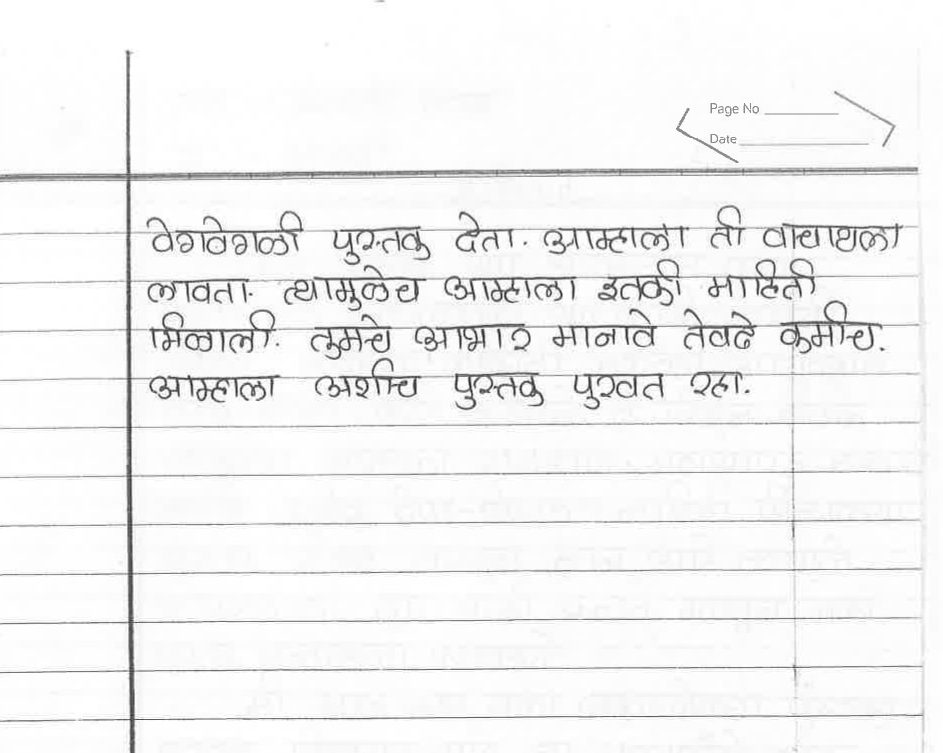 Page No
Date
वेगवेगळी पुस्तक देता. आम्हाला ती वाचायला
लावता. त्यामुळेच आम्हाला इतकी माहिती
मिळाली. तुमचे आभार मानावे तेवढे कमीच.
आम्हाला अशीच पुस्तक पुरवत रहा.